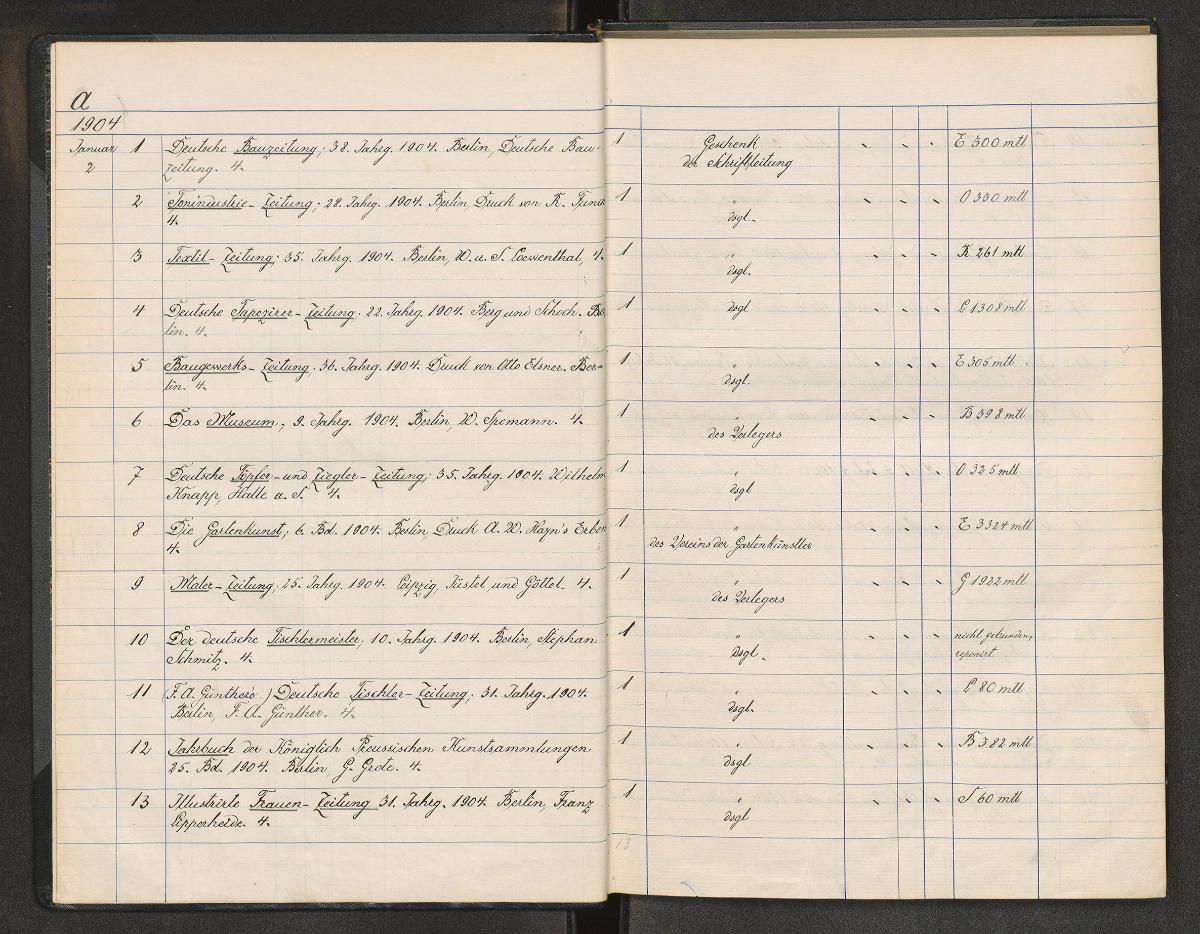 a
1904
Januar 1 Deutsche Bauzeitung; 38. Jahrg. 1904. Berlin, Deutsche Bau- 1 Geschenk E 300 mtl
2 zeitung. 4. der Schriftleitung
2 Tonindustrie-Zeitung; 28. Jahrg. 1904. Berlin, Druck von K. 1 " O 330 mtl
4. dsgl.
3 Textil-Zeitung; 35. Jahrg. 1904. Berlin, W. u. S. Loewenthal, 4. 1 " K 261 mtl
dsgl.
4 Deutsche Tapezirer-Zeitung. 22. Jahrg. 1904. Berg und Schoch. Ber 1 dsgl 1308 mtl
lin. 4.
5 Baugewerks-Zeitung. 36. Jahrg. 1904. Druck von Otto Elsner. Ber- 1 " E 305 mtl
lin. 4. dsgl.
6 Das Museum; 9. Jahrg. 1904. Berlin, W. Spemann. 4. 1 " B 398 mtl
des Verlegers
7 Deutsche Töpfer- und Ziegler-Zeitung; 35. Jahrg. 1904. Wilhelm 1 " O 325 mtl
Knapp, Halle a. S. 4. dsgl
8 Die Gartenkunst; 6. Bd. 1904. Berlin, Druck A. W. Hayn's Erben 1 " E 3324 mtl
4. des Vereins der Gartenkünstler
9 Maler-Zeitung; 25. Jahrg. 1904. Leipzig, Jüstel und Göttel. 4. 1 " G 1922 mtl
des Verlegers
10 Der deutsche Tischlermeister, 10. Jahrg. 1904. Berlin, Stephan 1 " nicht gebunden,
Schmitz. 4. dsgl. reponirt
11 (F. A. Günther's) Deutsche Tischler-Zeitung; 31. Jahrg. 1904. 1 " 80 mtl
Berlin, F. A. Günther. 4. dsgl.
12 Jahrbuch der Königlich Preussischen Kunstsammlungen 1 " B 382 mtl
25. Bd. 1904. Berlin, G. Grote. 4. dsgl
13 Illustrirte Frauen-Zeitung 31. Jahrg. 1904. Berlin, Franz 1 " S 60 mtl
Lipperheide. 4. dsgl
13